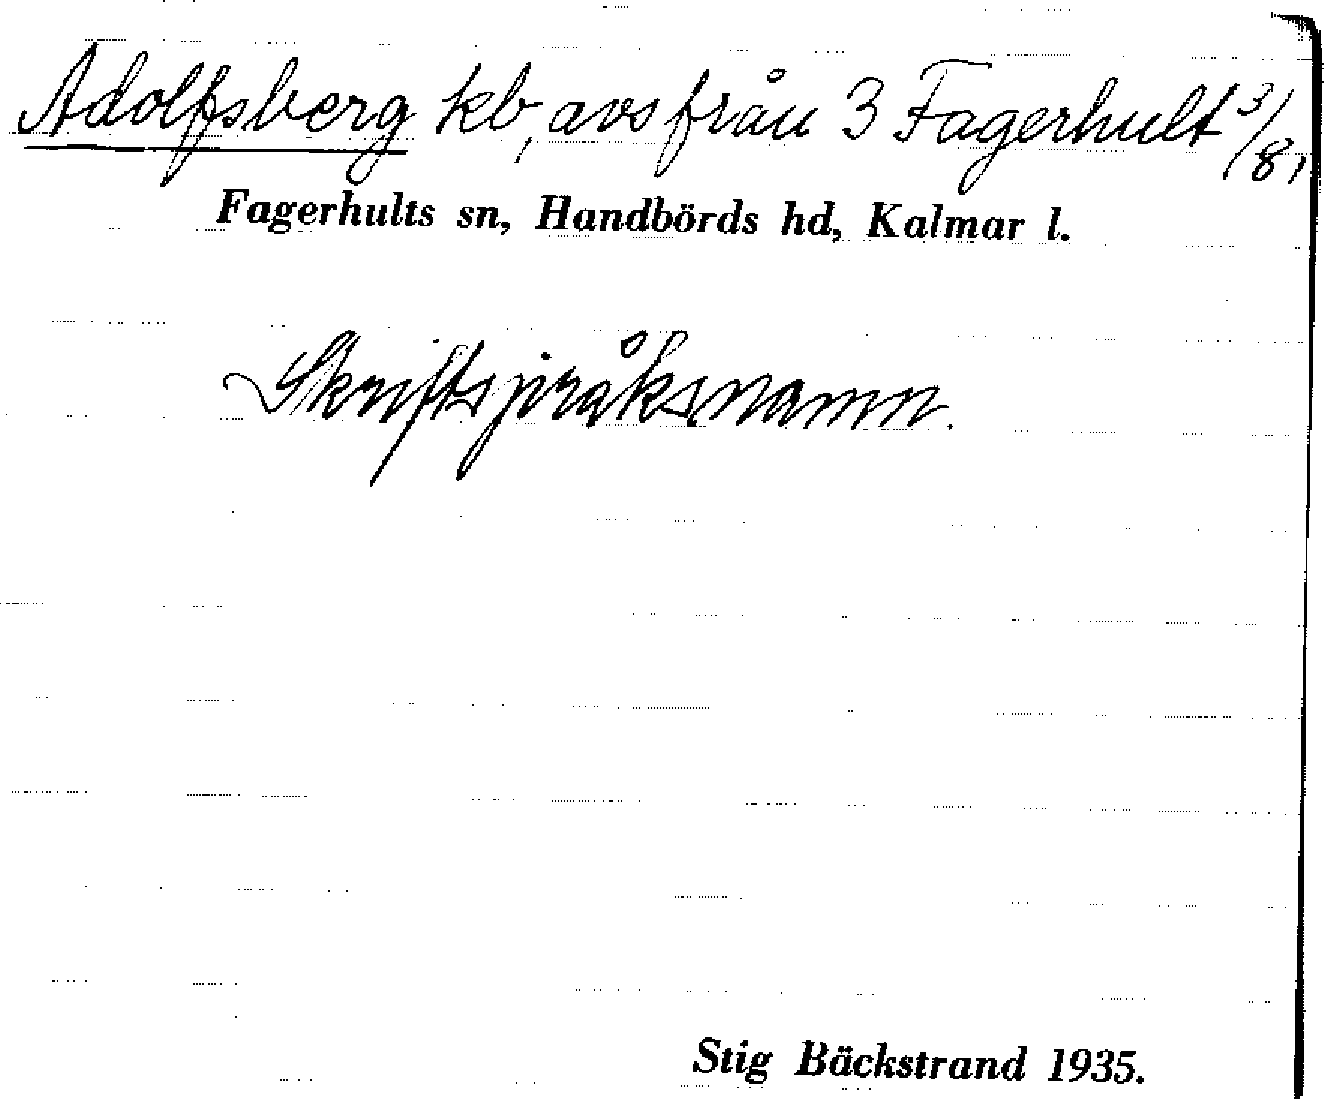 Adolfsberg kb, avs från 3 Fagerhult 3/8,
Fagerhults sn, Handbörds hd, Kalmar l.
Skriftspråksnamn.
Stig Bäckstrand 1935.